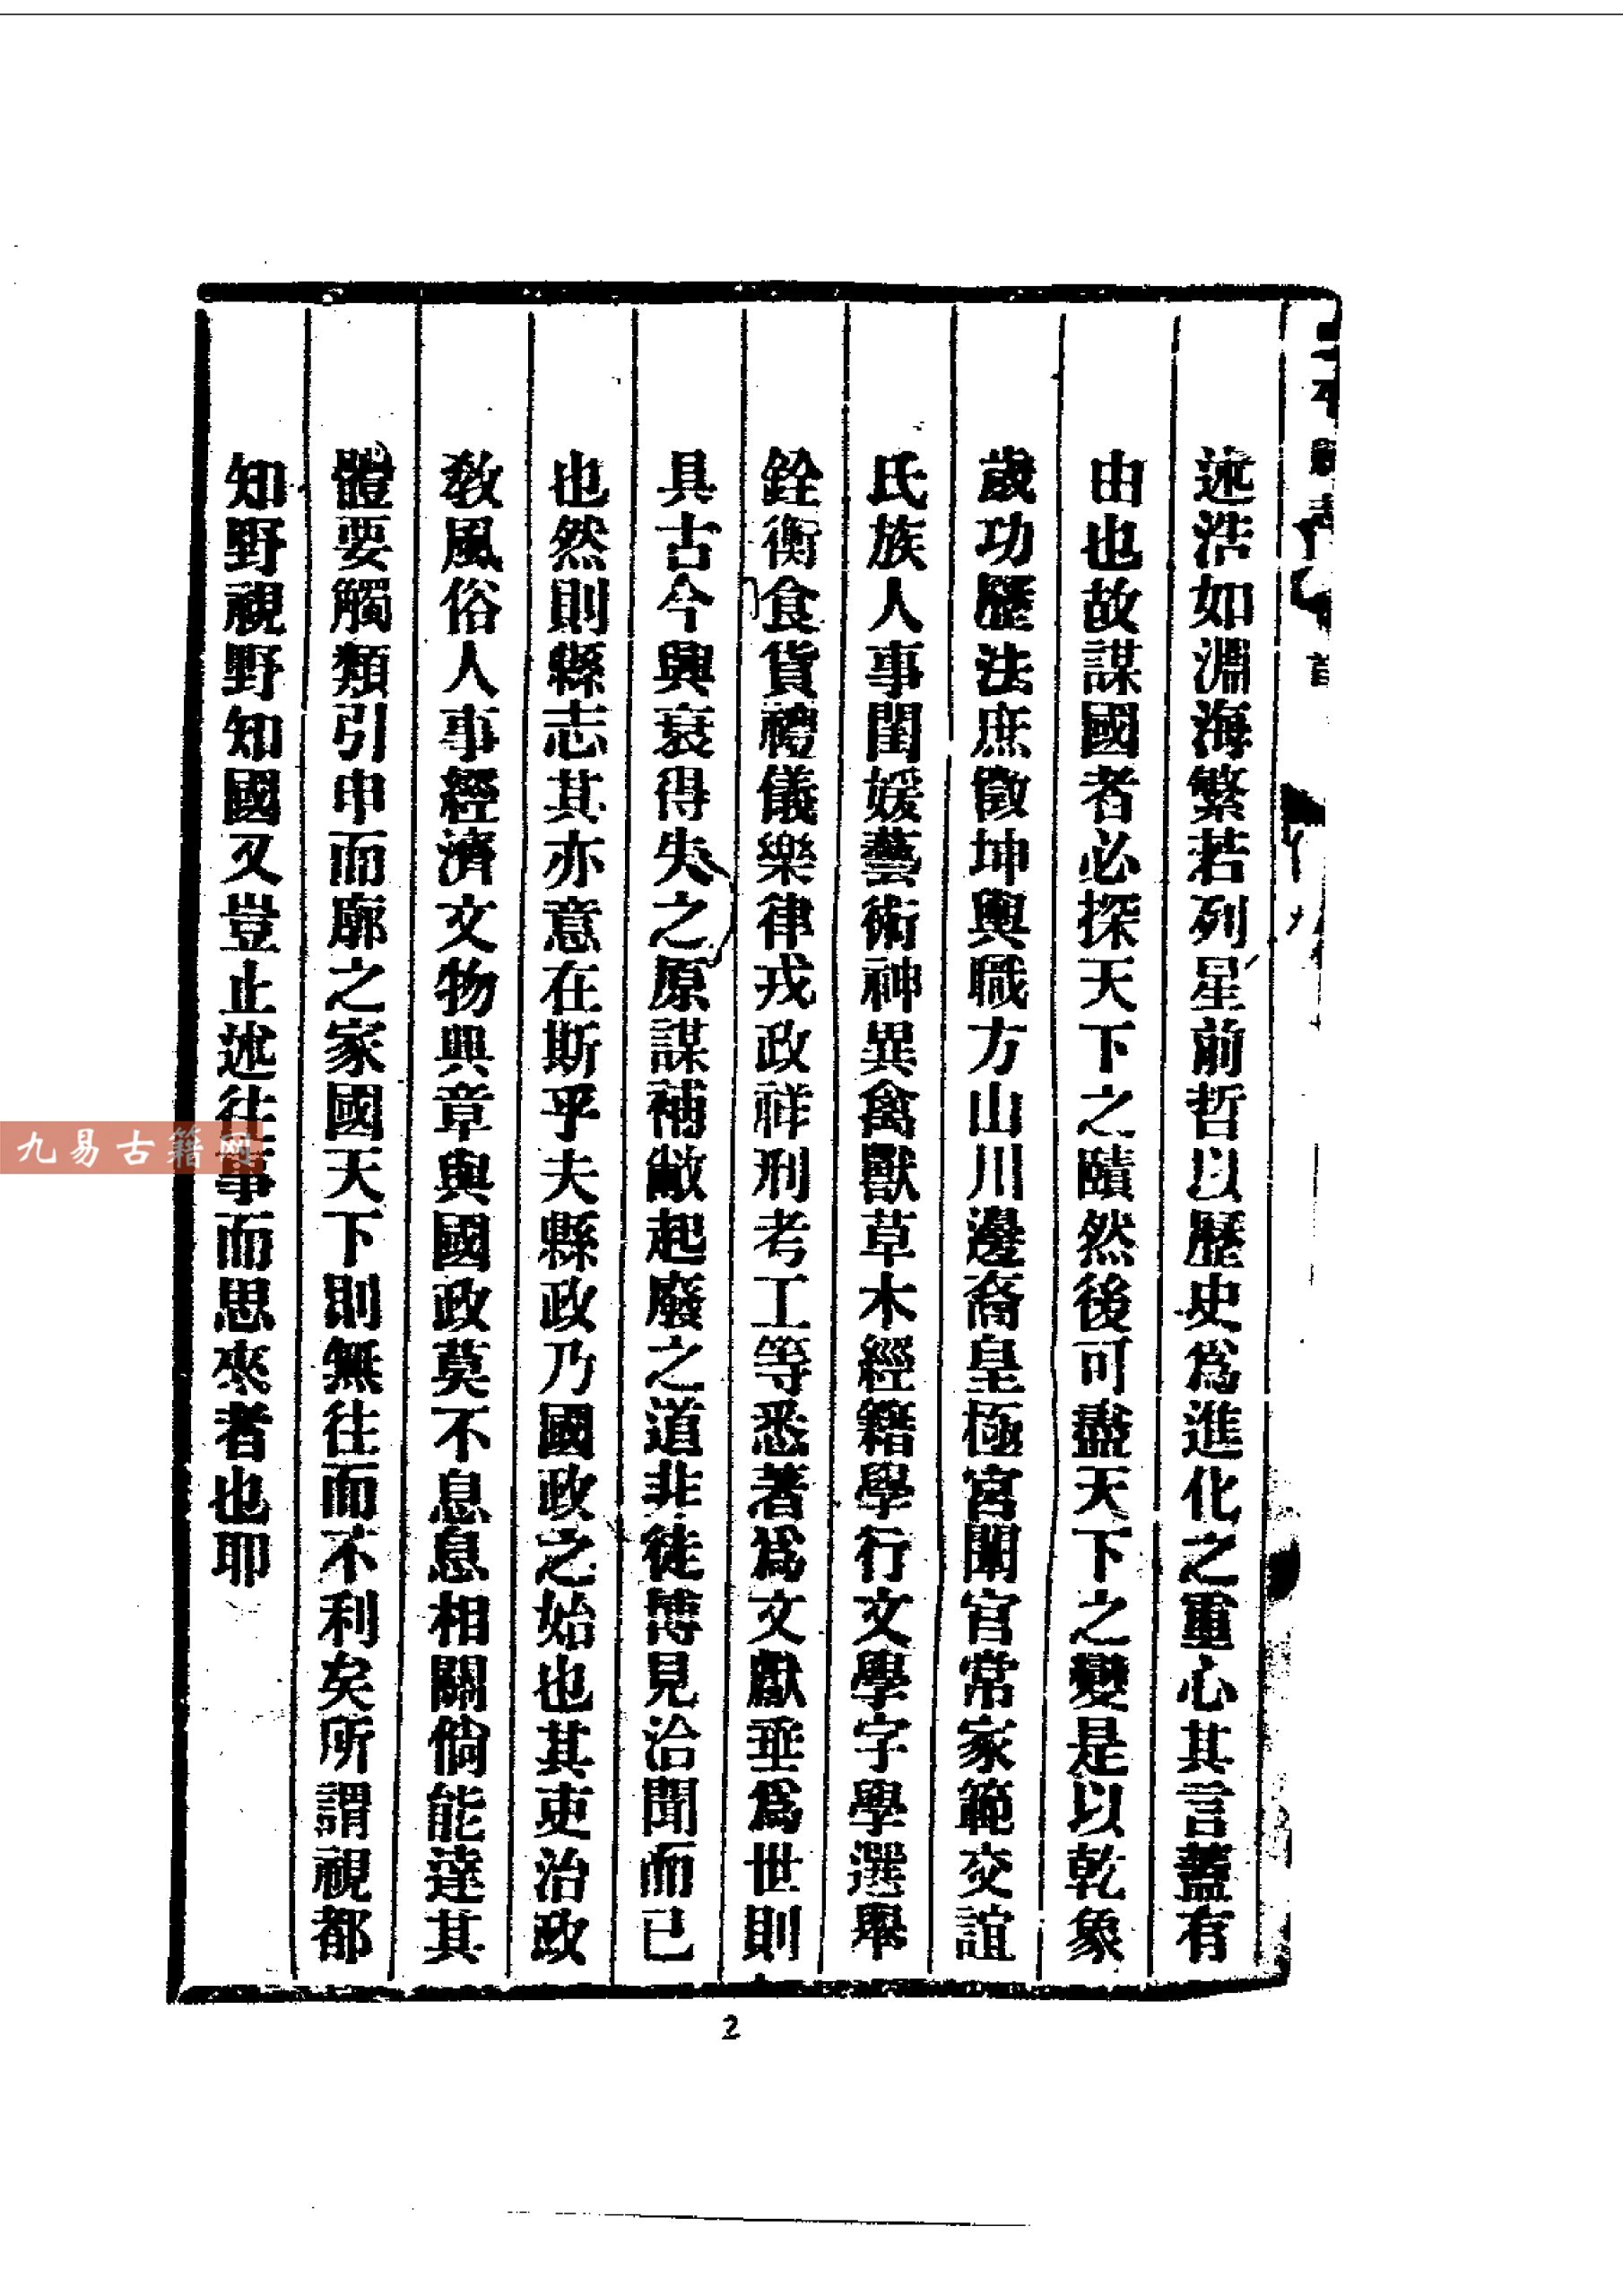 述浩如淵海繁若列星前哲以歷史爲進化之重心其言蓋有
由也故謀國者必探天下之賾然後可盡天下之變是以乾象
歲功歷法庶徵坤輿職方山川邊裔皇極宮闈官常家範交誼
氏族人事閨媛藝術神異禽獸草木經籍學行文學字學選舉
銓衡食貨禮儀樂律戎政祥刑考工等悉著爲文獻垂爲世則
具古今興衰得失之原謀補敝起廢之道非徒博見洽聞而已
也然則縣志其亦意在斯乎夫縣政乃國政之始也其吏治政
敎風俗人事經濟文物典章與國政莫不息息相關倘能達其
體要觸類引申而廓之家國天下則無往而不利矣所謂視都
知野視野知國又豈止述往事而思來者也耶
2
九易古籍网